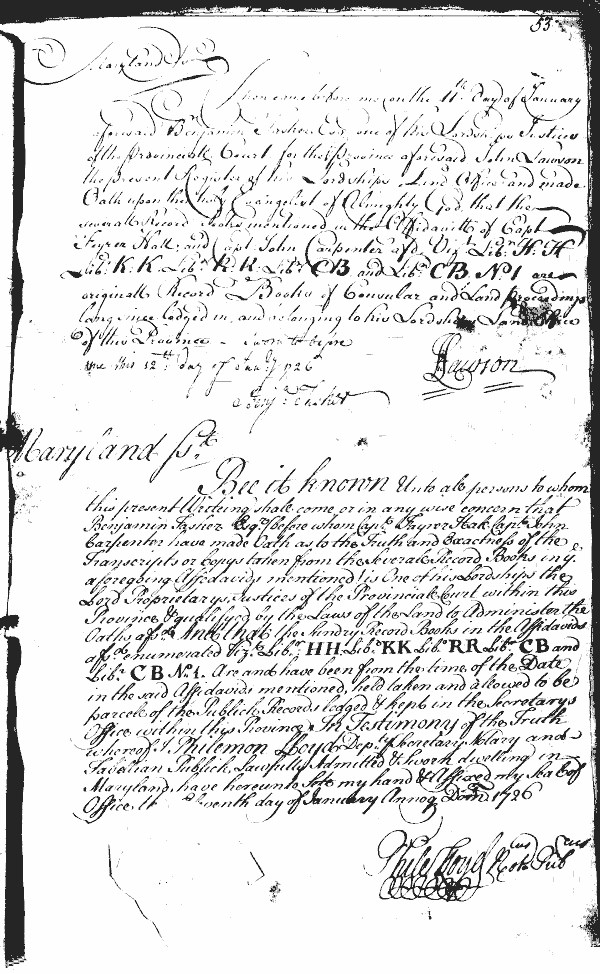 53
Maryland Ss.
Then came before me on the 11th Day of January
aforesaid Benjamin Tasker Esqr. one of his Lordships Justices
of the Provinciale Court for the Province aforesaid John Lawson
the present Register of his Lordships Land Office and made
Oath upon the holy Evangelist of Almighty God, that the
severall Record Books mentioned in the Affidavitt of Capt
Feyrer Hall and Capt. John Carpenter afsd Vizt. Libr. H.H
Libr. K.K. Libr. R.R. Libr. CB and Libr. CB No. 1 are
originall Record Books of Council and Land Proceedings
long since lodged in, and belonging to his Lordships Land Office
of this Province – Sworn to before
me this 12th day of Janry 1726
JLawson
Benja. Tasker
Maryland Sst.
Bee it known Unto all persons to whom
this present Writeing shall come or in any wise concern that
Benjamin Tasker Esqr. before whom Capt. Fayrer Hall Capt. John
Carpenter have made Oath as to the Truth and Exactness of the
Transcripts or Copys taken from the Severall Record Books in ye.
aforegoing Affidavids mentioned is One of his Lordships the
Lord Proprietarys Justices of the Provincial Court within this
Province & qualifyed by the Laws of the Land to Administer the
Oaths afsd. And that the Sundry Record Books in the Affidavids
afsd. enumerated Vizt. Libr. HH Libr. KK Libr. RR Libr. CB and
Libr. CB No. 1. Are and have been from the time of the Date
in the said Affidavids mentioned, held taken and allowed to be
parcele of the Publick Records lodged & kept in the Secretarys
Office within this Province. In Testimony of the Truth
whereof I Philemon Lloyd Depty. Secretary Notary and
Tabellian Publick Lawfully Admitted & Sworn dwelling in
Maryland, have hereunto Sett my hand & Affixed my Seal of
Office day of January Annoq Dom. 1726
Phile: Lloyd Notus Pubcus